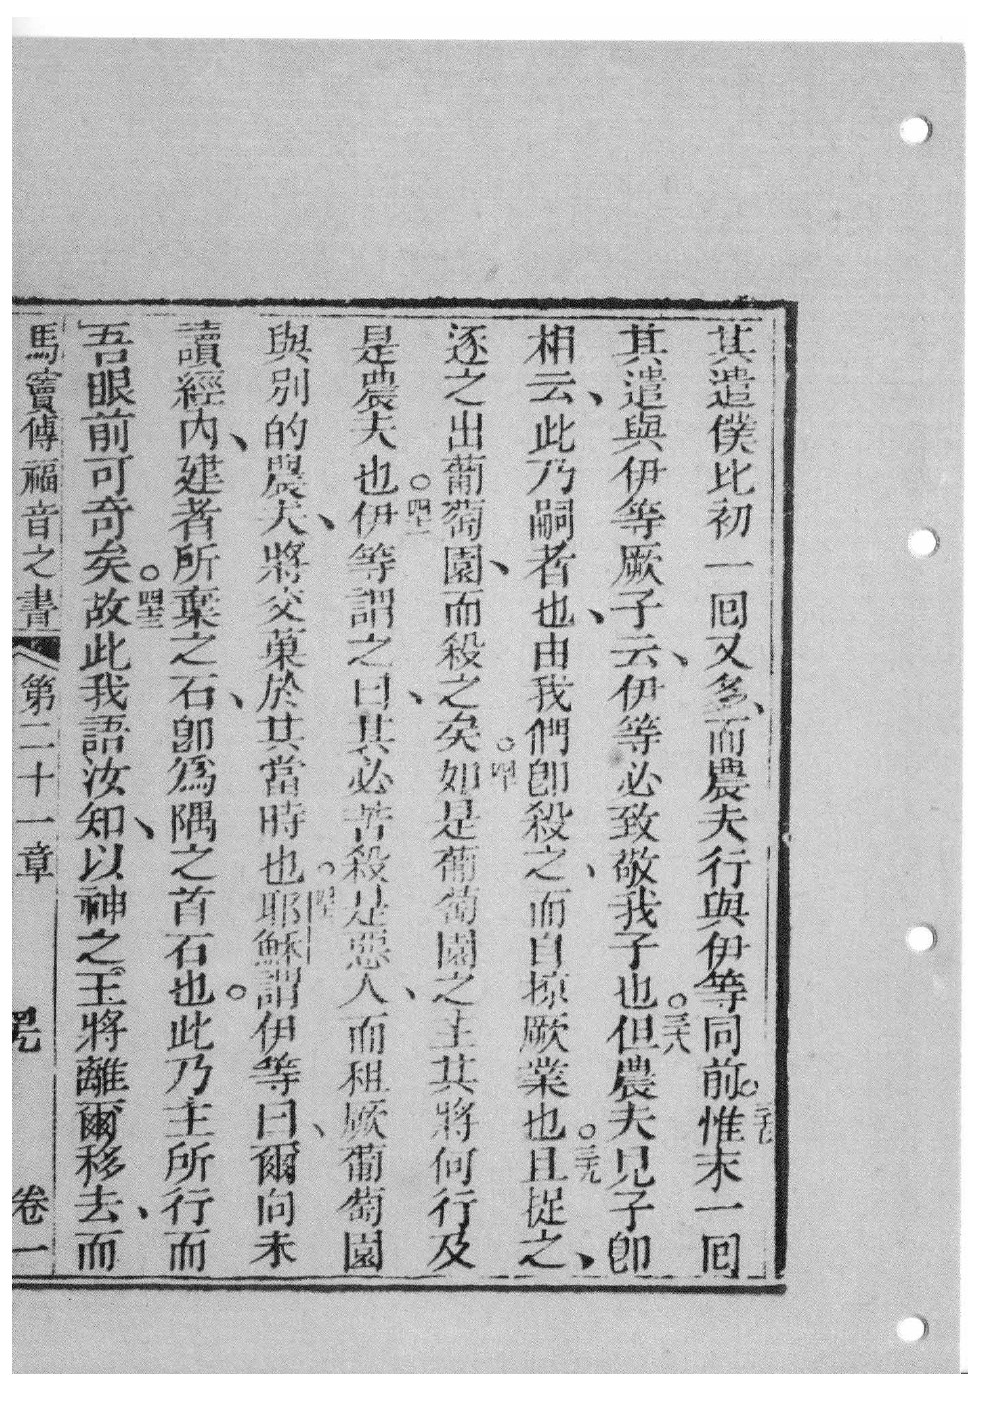 其遣僕比初一囘又多、而農夫行與伊等同前。三七惟末一囘
其遣與伊等厥子云、伊等必致敬我子也。三八但農夫見子卽
相云、此乃嗣者也、由我們卽殺之、而自掠厥業也。三九且捉之、
逐之出葡萄園、而殺之矣。四十如是葡萄園之主其將何行及
是農夫也。四一伊等謂之曰、其必苦殺是惡人、而租厥葡萄園
與別的農夫、將交菓於其當時也。四二耶穌謂伊等曰、爾向未
讀經內、建者所棄之石、卽爲隅之首石也。此乃主所行而
吾眼前可奇矣。四三故此我語汝知、以神之王將離爾移去、而
馬竇傳福音之書 第二十一章 卷一